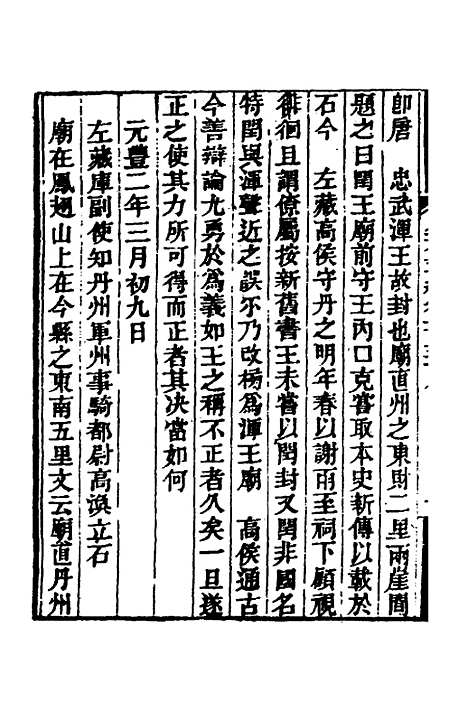 即唐　忠武渾王故封也廟直州之東財二里兩崖間
題之曰閏王廟前守王丙口克嘗取本史新傳以載於
石今　左藏高侯守丹之明年春以謝雨至祠下顧視
徘徊且謂僚屬按新舊書王未嘗以閏封又閏非國名
特閏與渾聲近之誤尔乃改榜為渾王廟　高侯通古
今善辯論尤勇於為義如王之稱不正者久矣一旦遂
正之使其力所可得而正者其决當如何
元豐二年三月初九日
左藏庫副使知丹州軍州事騎都尉高渙立石
廟在鳳翅山上在今縣之東南五里文云廟道丹州